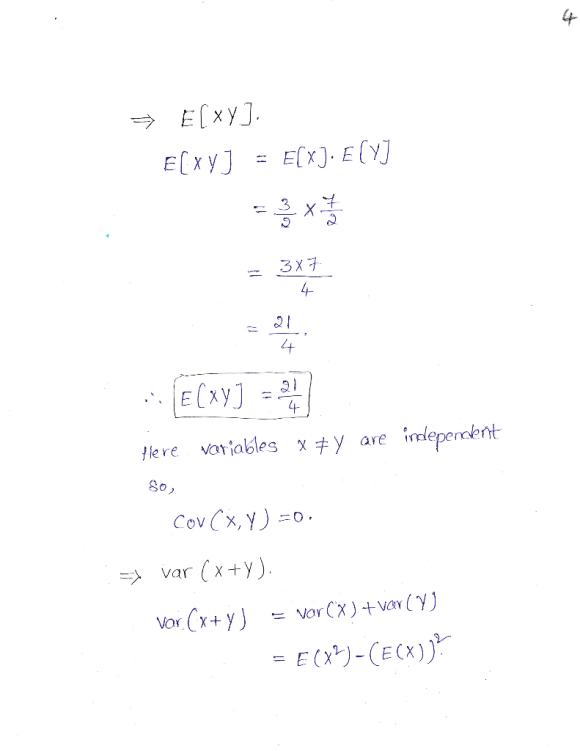 4
⇒ E[XY].
E[XY] = E[X]. E[Y]
= 3/2 × 7/2
= 3×7/4
= 21/4.
∴ E[XY] = 21/4
Here variables x ≠ y are independent
So,
Cov(X,Y) = 0.
⇒ var (x+y).
var (x+y) = var(x) + var(Y)
= E(X²) - (E(X))².